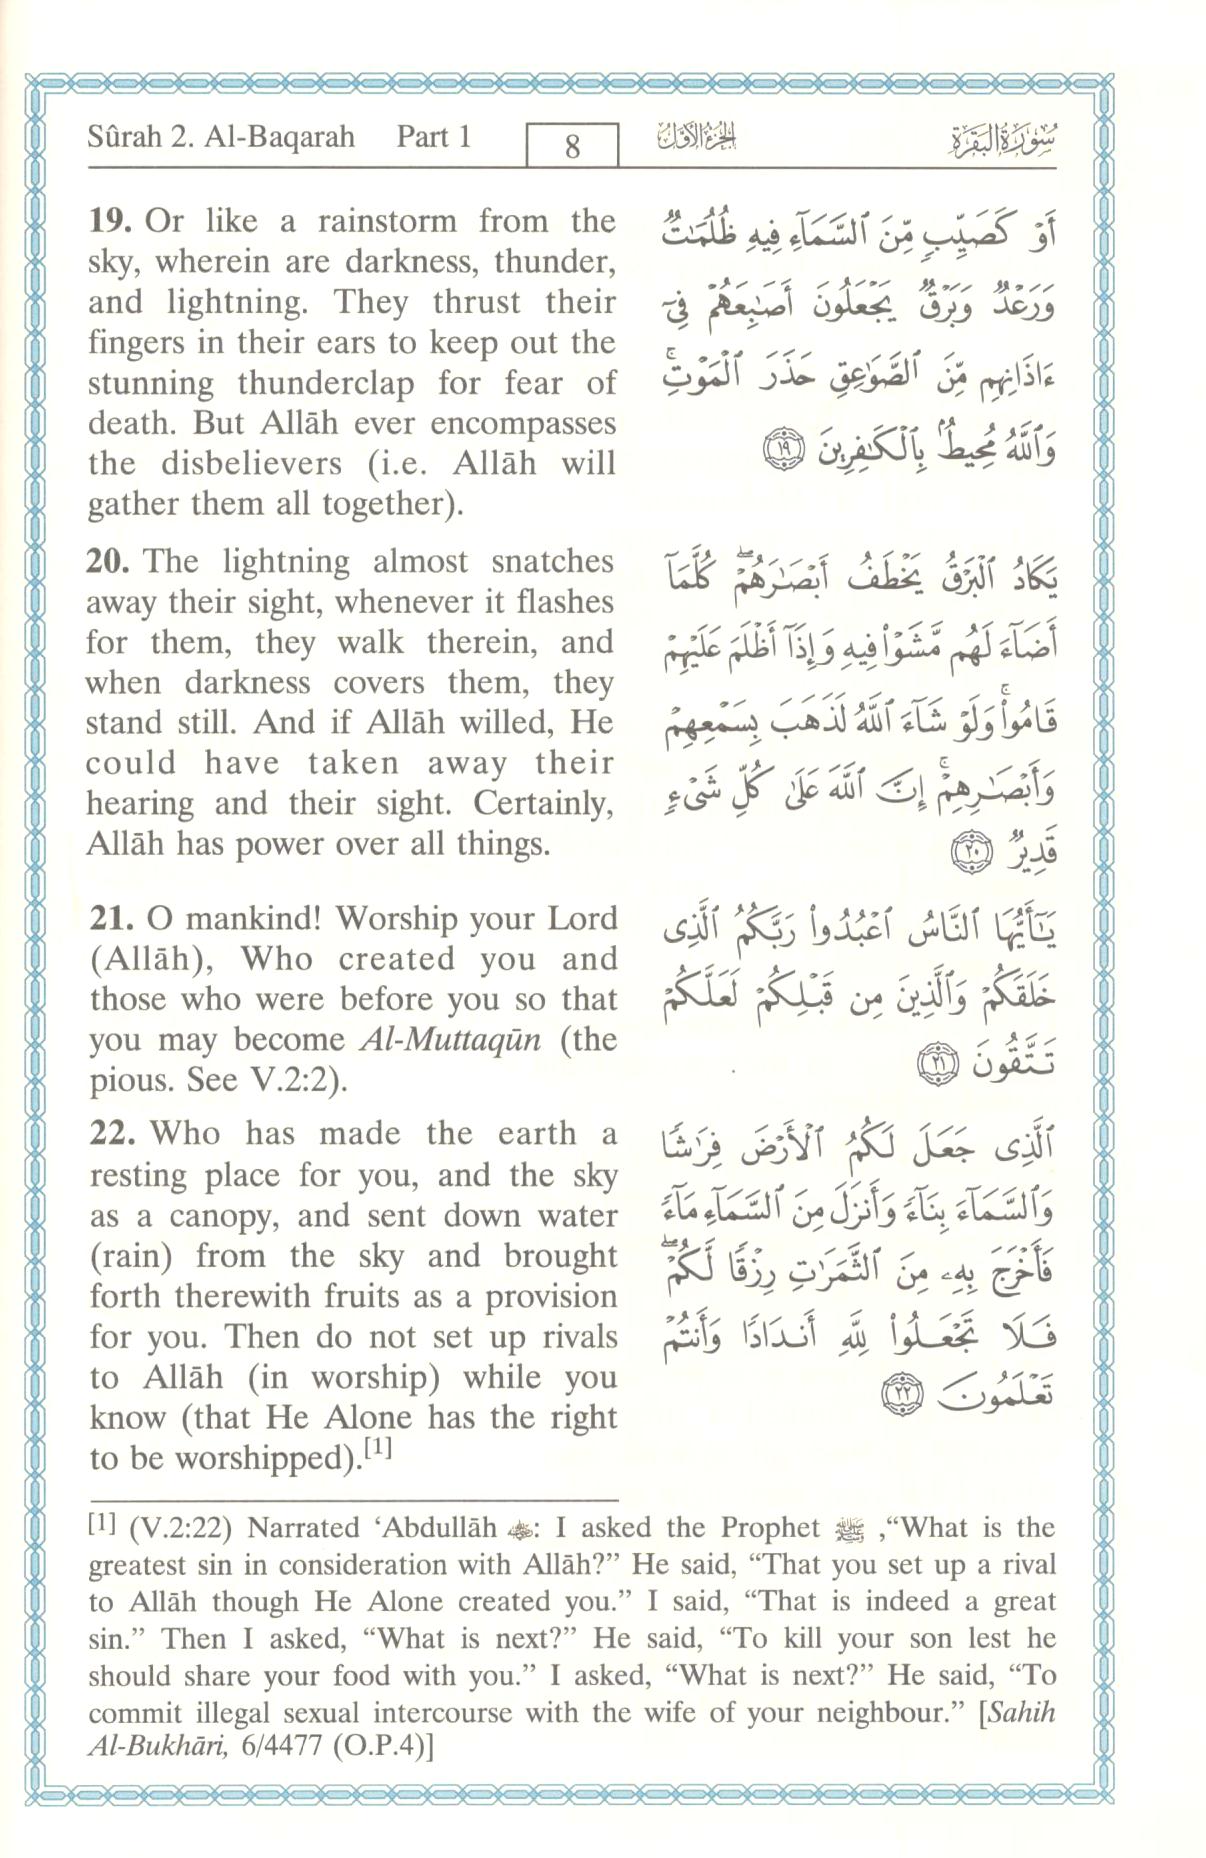 Sûrah 2. Al-Baqarah Part 1 8 الجزء الأول سورة البقرة
19. Or like a rainstorm from the
sky, wherein are darkness, thunder,
and lightning. They thrust their
fingers in their ears to keep out the
stunning thunderclap for fear of
death. But Allāh ever encompasses
the disbelievers (i.e. Allāh will
gather them all together).
أَوْ كَصَيِّبٍ مِّنَ ٱلسَّمَآءِ فِيهِ ظُلُمَٰتٌ
وَرَعْدٌ وَبَرْقٌ يَجْعَلُونَ أَصَٰبِعَهُمْ فِىٓ
ءَاذَانِهِم مِّنَ ٱلصَّوَٰعِقِ حَذَرَ ٱلْمَوْتِ ۚ
وَٱللَّهُ مُحِيطٌۢ بِٱلْكَٰفِرِينَ ١٩
20. The lightning almost snatches
away their sight, whenever it flashes
for them, they walk therein, and
when darkness covers them, they
stand still. And if Allāh willed, He
could have taken away their
hearing and their sight. Certainly,
Allāh has power over all things.
يَكَادُ ٱلْبَرْقُ يَخْطَفُ أَبْصَٰرَهُمْ ۖ كُلَّمَآ
أَضَآءَ لَهُم مَّشَوْا۟ فِيهِ وَإِذَآ أَظْلَمَ عَلَيْهِمْ
قَامُوا۟ ۚ وَلَوْ شَآءَ ٱللَّهُ لَذَهَبَ بِسَمْعِهِمْ
وَأَبْصَٰرِهِمْ ۚ إِنَّ ٱللَّهَ عَلَىٰ كُلِّ شَىْءٍ
قَدِيرٌ ٢٠
21. O mankind! Worship your Lord
(Allāh), Who created you and
those who were before you so that
you may become Al-Muttaqūn (the
pious. See V.2:2).
يَٰٓأَيُّهَا ٱلنَّاسُ ٱعْبُدُوا۟ رَبَّكُمُ ٱلَّذِى
خَلَقَكُمْ وَٱلَّذِينَ مِن قَبْلِكُمْ لَعَلَّكُمْ
تَتَّقُونَ ٢١
22. Who has made the earth a
resting place for you, and the sky
as a canopy, and sent down water
(rain) from the sky and brought
forth therewith fruits as a provision
for you. Then do not set up rivals
to Allāh (in worship) while you
know (that He Alone has the right
to be worshipped).[1]
ٱلَّذِى جَعَلَ لَكُمُ ٱلْأَرْضَ فِرَٰشًا
وَٱلسَّمَآءَ بِنَآءً وَأَنزَلَ مِنَ ٱلسَّمَآءِ مَآءً
فَأَخْرَجَ بِهِۦ مِنَ ٱلثَّمَرَٰتِ رِزْقًا لَّكُمْ ۖ
فَلَا تَجْعَلُوا۟ لِلَّهِ أَندَادًا وَأَنتُمْ
تَعْلَمُونَ ٢٢
[1] (V.2:22) Narrated ‘Abdullāh رضي الله عنه: I asked the Prophet ﷺ ,“What is the
greatest sin in consideration with Allāh?” He said, “That you set up a rival
to Allāh though He Alone created you.” I said, “That is indeed a great
sin.” Then I asked, “What is next?” He said, “To kill your son lest he
should share your food with you.” I asked, “What is next?” He said, “To
commit illegal sexual intercourse with the wife of your neighbour.” [Sahih
Al-Bukhāri, 6/4477 (O.P.4)]